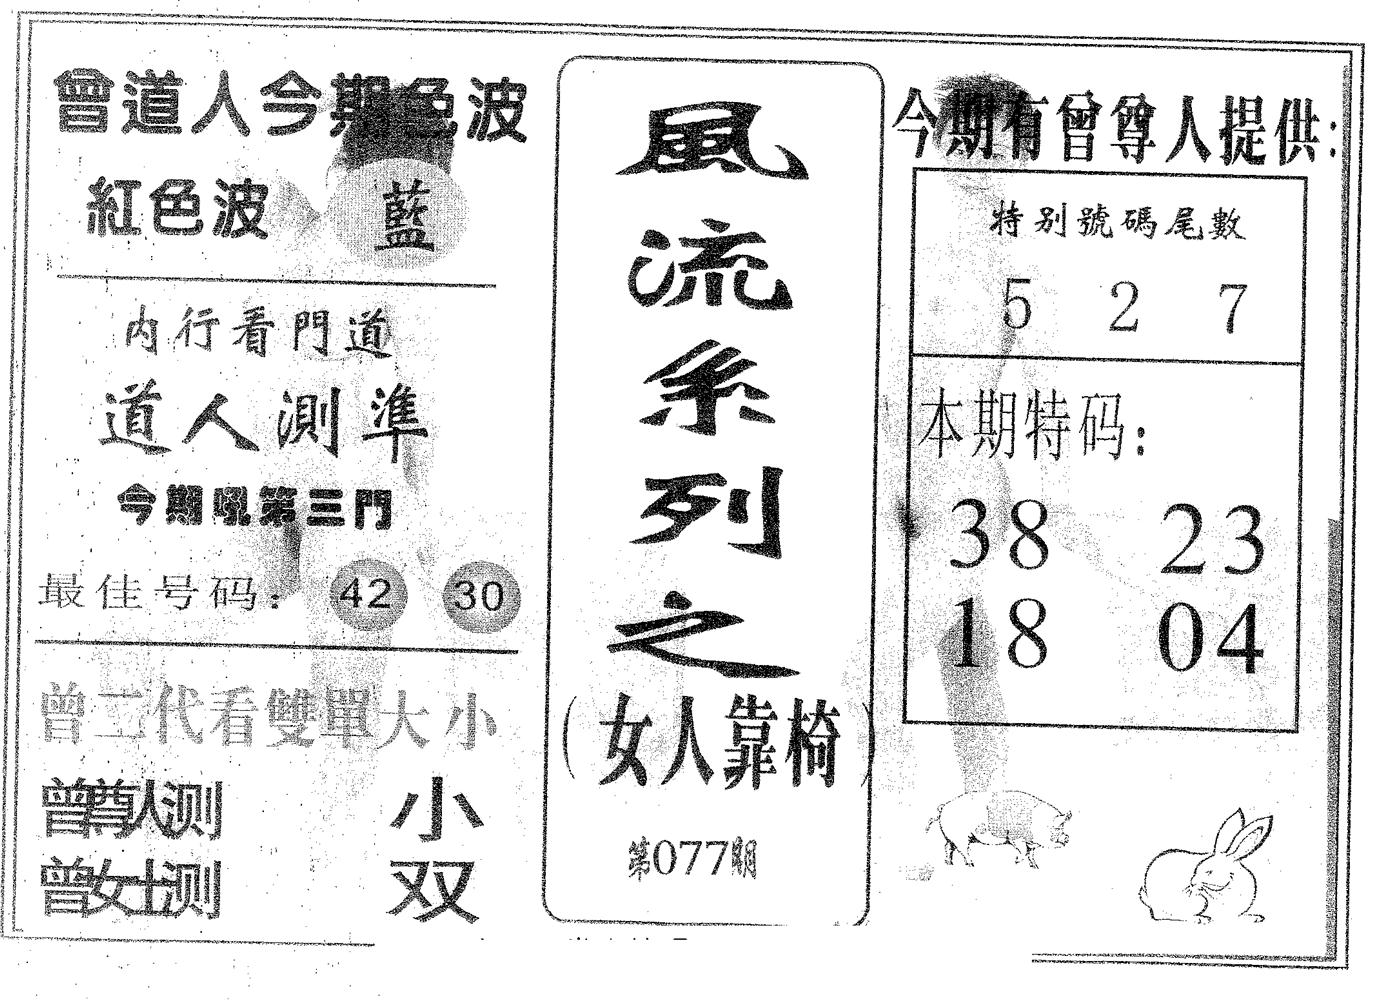 曾道人今期色波
紅色波 藍
内行看門道
道人測準
今期吼第三門
最佳号码: 42 30
曾二代看雙單大小
曾尊人测 小
曾女士测 双
風
流
系
列
之
(女人靠椅)
第077期
今期有曾尊人提供:
特别號碼尾數
5 2 7
本期特码:
38 23
18 04